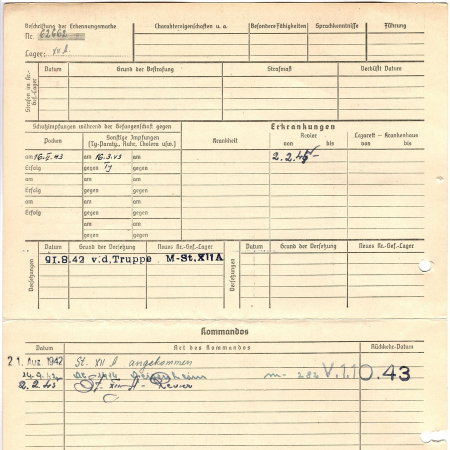 Beschriftung der Erkennungsmarke
Nr. 62662
Lager: XII A
Charaktereigenschaften u. a.
Besondere Fähigkeiten
Sprachkenntnisse
Führung
Strafen im Kr.-Gef.-Lager
Datum Grund der Bestrafung Strafmaß Verbüßt Datum
Schutzimpfungen während der Gefangenschaft gegen
Pocken
Sonstige Impfungen
(Ty-Paraty., Ruhr, Cholera usw.)
Erkrankungen
Krankheit
Revier
von bis
Lazarett – Krankenhaus
von bis
am 16.3.43 am 16.3.43 am
2.2.45-
Erfolg gegen Ty gegen
am am am
Erfolg gegen gegen
am am am
Erfolg gegen gegen
am am
gegen gegen
Versetzungen
Datum Grund der Versetzung Neues Kr.-Gef.-Lager
Datum Grund der Versetzung Neues Kr.-Gef.-Lager
v.d.Truppe M-St.XIIA
Kommandos
Datum Art des Kommandos Rückkehr-Datum
21. Aug. 1942 St. XII A angekommen
V.1.10.43
2.2.45 St. XII A - Revier